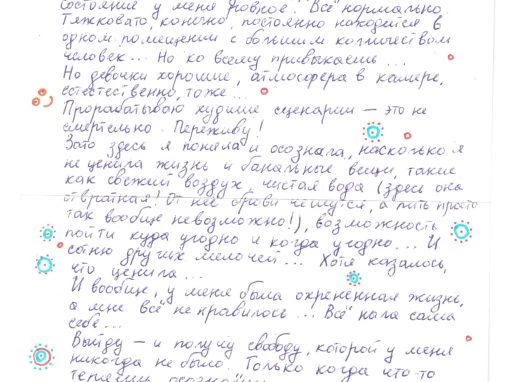 состояние у меня ровное. Всё нормально.
Тяжковато, конечно, постоянно находится в
одном помещении с большим количеством
человек... Но ко всему привыкаешь...
Но девочки хорошие, атмосфера в камере,
естественно, тоже...
Прорабатываю худшие сценарии — это не
смертельно. Переживу!
Зато здесь я поняла и осознала, насколько я
не ценила жизнь и банальные вещи, такие
как свежий воздух, чистая вода (здесь она
отвратная! От неё брови чешутся, а пить просто
так вообще невозможно!), возможность
пойти куда угодно и когда угодно... И
сотню других мелочей... Хотя казалось,
что ценила...
И вообще, у меня была охрененная жизнь,
а мне всё не нравилось... Всё ныла сама
себе...
Выйду — и получу свободу, которой у меня
никогда не было. Только когда что-то